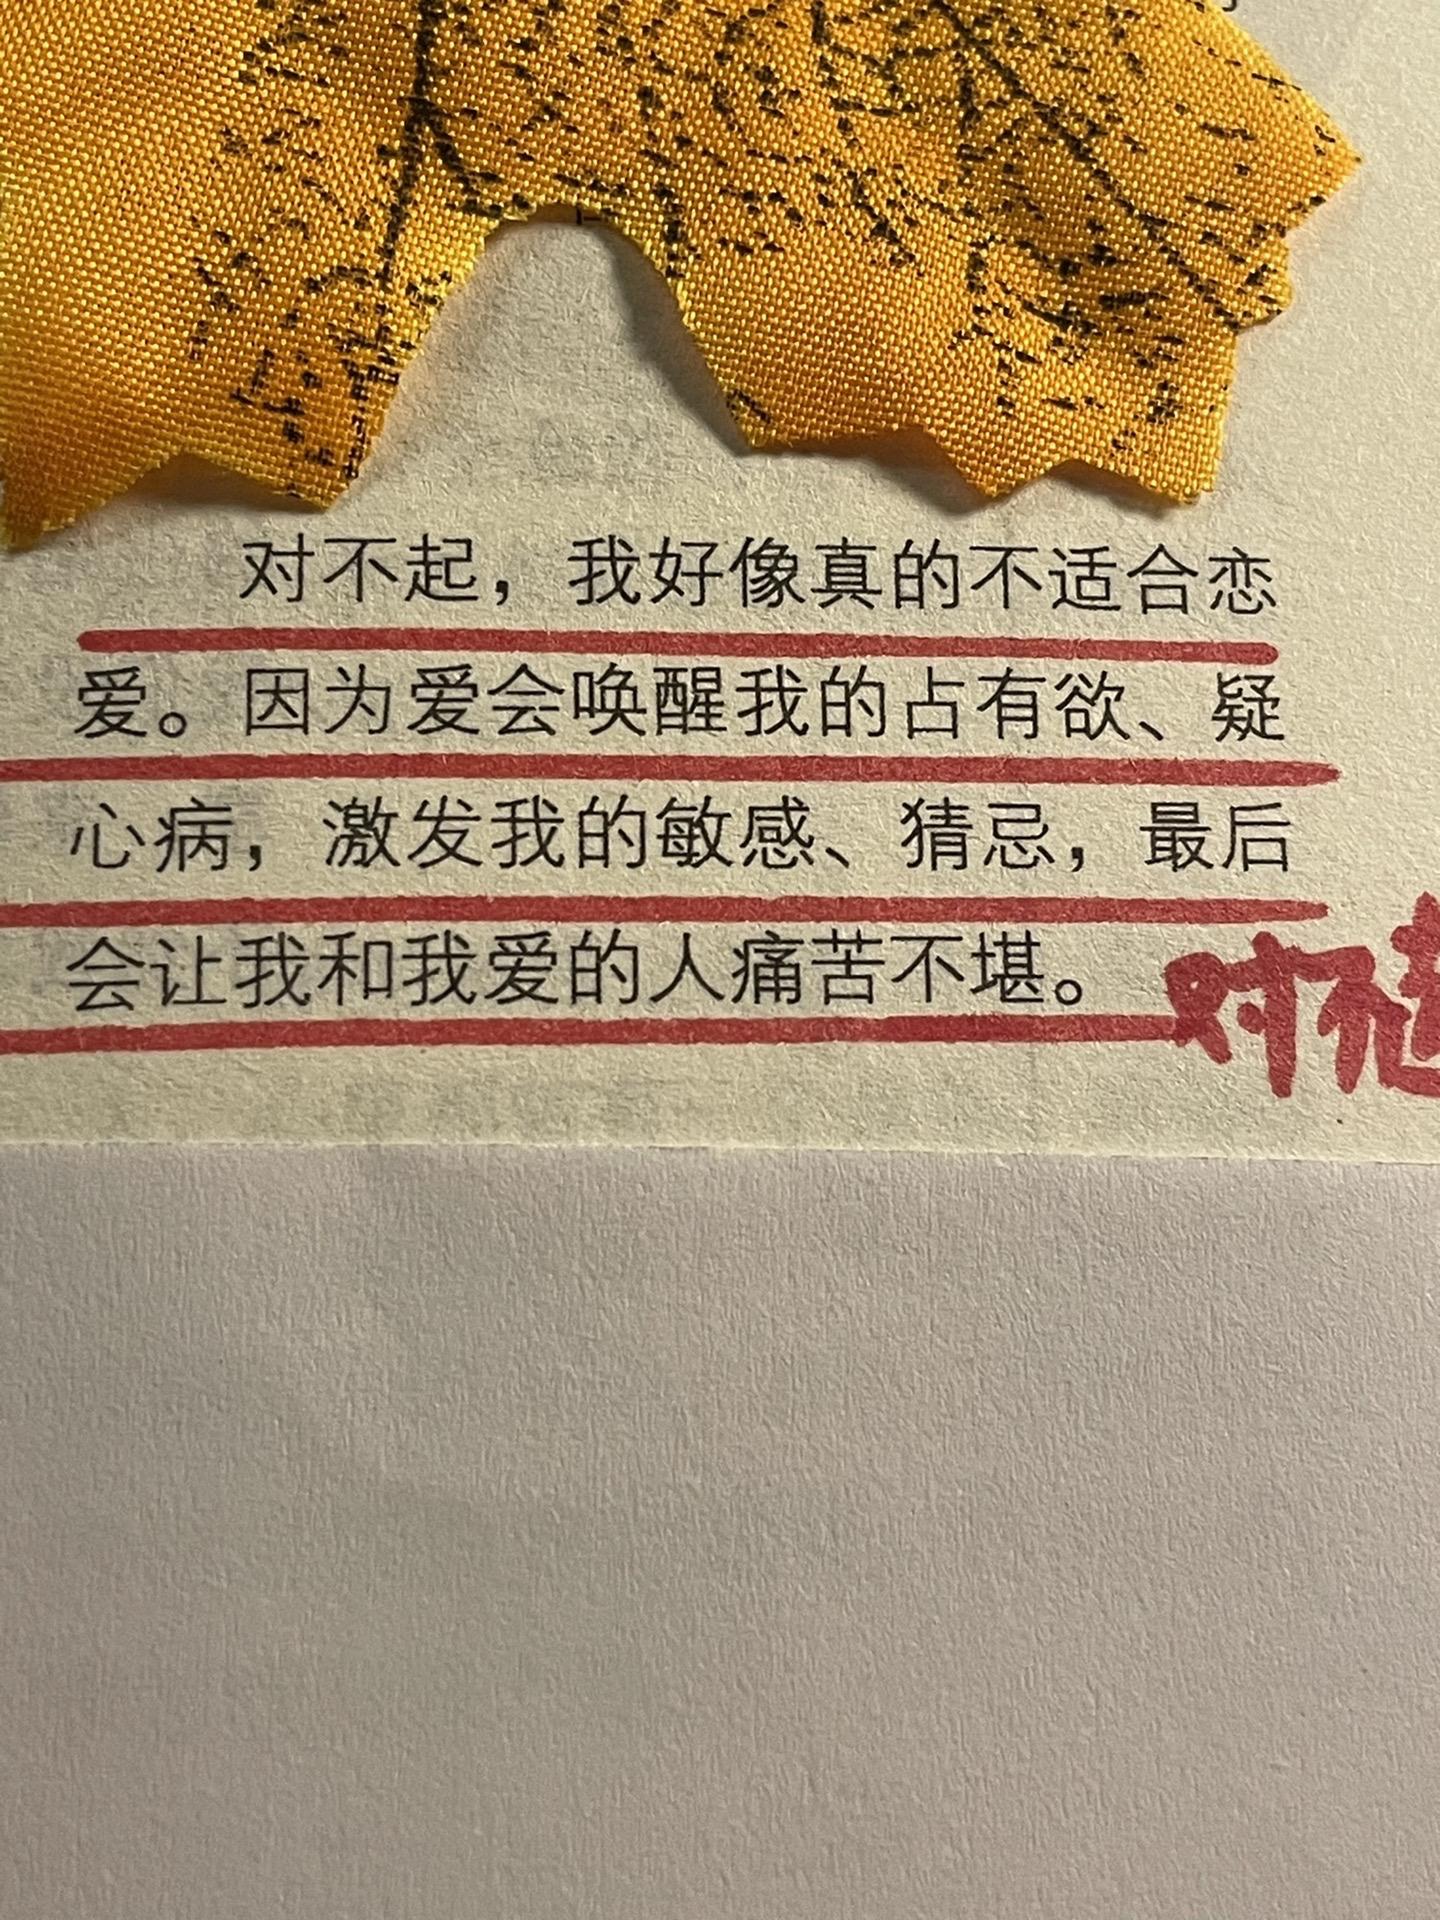 对不起，我好像真的不适合恋
爱。因为爱会唤醒我的占有欲、疑
心病，激发我的敏感、猜忌，最后
会让我和我爱的人痛苦不堪。
对不起